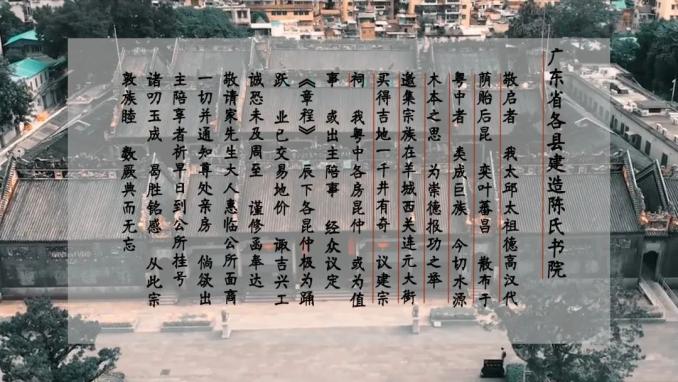 广东省各县建造陈氏书院
敬启者 我太邱太祖德高汉代
荫贻后昆 奕叶蕃昌 散布于
粤中者 类成巨族 今切水源
木本之思 为崇德报功之举
邀集宗族在羊城西关连元大街
买得吉地一千井有奇 议建宗
祠 我粤中各房昆仲 或为值
事 或出主陪享 经众议定
《章程》 辰下各昆仲极为踊
跃 业已交易地价 诹吉兴工
诚恐未及周至 谨修函奉达
敬请家先生大人惠临公所面商
一切并通知尊处亲房 倘欲出
主陪享者祈早日到公所挂号
诸叨玉成 曷胜铭感 从此宗
敦族睦 数厥典而无忘